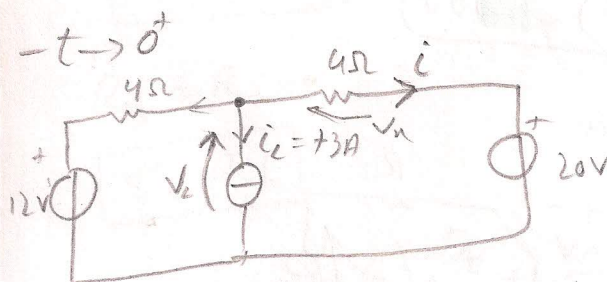 - t → 0⁺
4Ω
4Ω
i
i_L = +3A
V_L
V_R
+
12V
+
20V